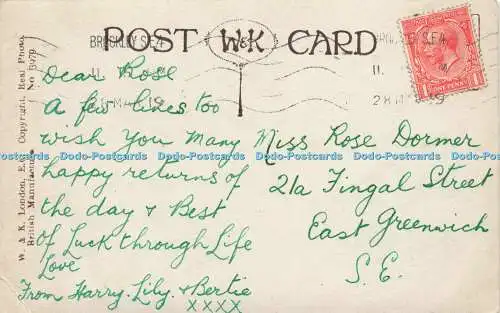 POST W&K CARD
BROCKLEY S.E.4
11
28 MAR 19
W. & K. London, E.C. Copyright. Real Photo.
British Manufacture No 5079
Dear Rose
A few lines too
wish you many
happy returns of
the day & Best
of Luck through Life
Love
From Harry. Lily. & Bertie
XXXX
Miss Rose Dormer
21a Fingal Street
East Greenwich
S.E.
1 ONE PENNY 1
Dodo-Postcards Dodo-Postcards Dodo-Postcards Dodo-Postcards Dodo-Postcards Dodo-Postcards